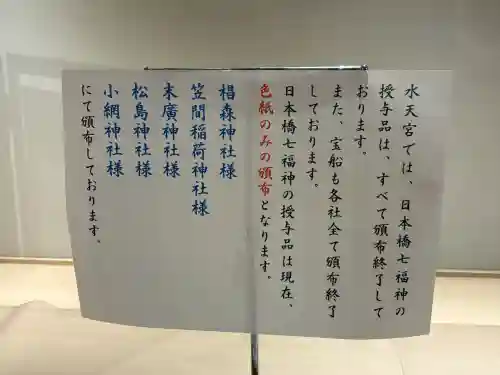 水天宮では、日本橋七福神の
授与品は、すべて頒布終了して
おります。
また、宝船も各社全て頒布終了
しております。
日本橋七福神の授与品は現在、
色紙のみの頒布となります。
椙森神社様
笠間稲荷神社様
末廣神社様
松島神社様
小網神社様
にて頒布しております。